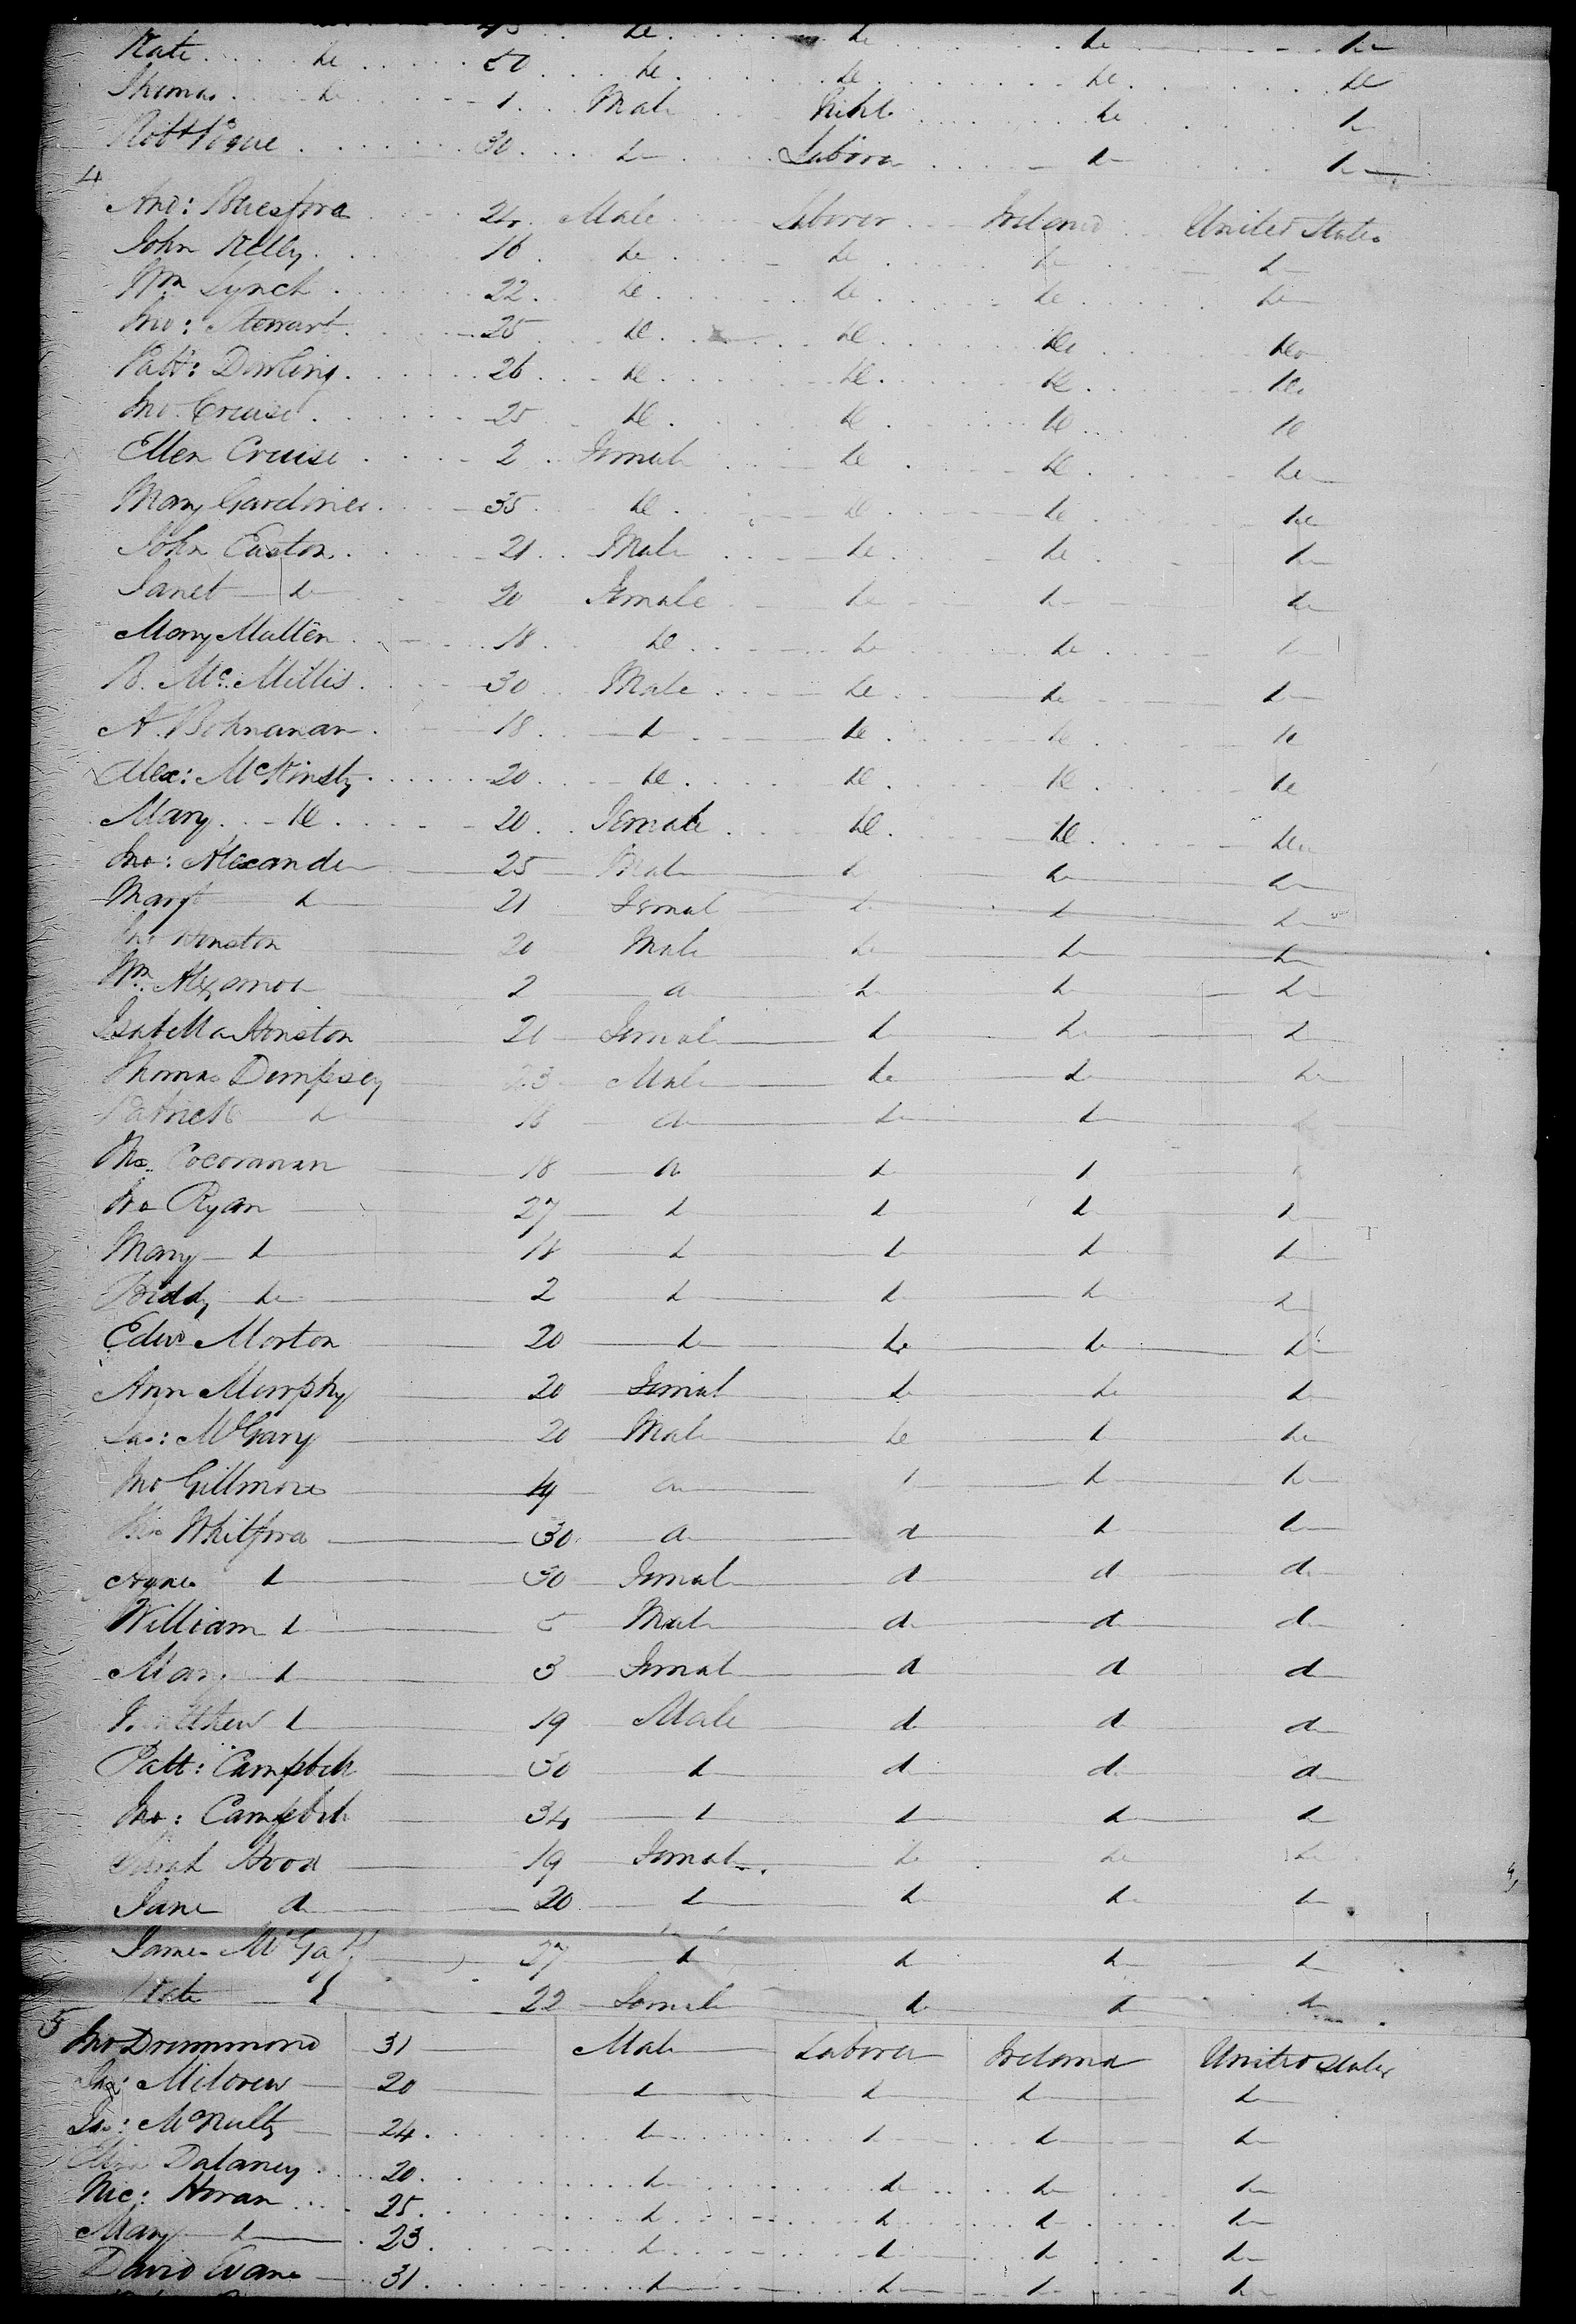 45 do do do do
Kate do 50 do do do do
Thomas do 1 Male do do
Robt Pogue 30 do Laborer do do
4
And: Beresford 24 Male Laborer Ireland United States
John Kelly 16 do do do do
Wm Lynch 22 do do do do
Jno: Stewart 25 do do do do
Patt: Dowling 26 do do do do
Jno Cruise 25 do do do do
Ellen Cruise 2 Female do do do
Mary Gardiner 35 do do do do
John Easton 21 Male do do do
Janet do 20 Female do do do
Mary Mullen 18 do do do do
B. Mc. Millis 30 Male do do do
A. Bohnanan 18 do do do do
Alex: McKinsty 20 do do do do
Mary do 20 Female do do do
Jno: Alexander 25 Male do do do
Margt do 21 Femal do do do
Jno Honston 20 Male do do do
Wm 2 do do do do
Isabella Honston 20 Femal do do do
Thomas Dempsey 23 Male do do do
Patrick do 18 do do do do
Cocoranan 18 do do do
Jno Ryan 27 do do do do
Mary do 18 do do do do
Biddy do 2 do do do do
Edwd Morton 20 do do do do
Ann Murphy 20 Femal do do do
Jas: McGary 20 Male do do do
Jno Gillmore 19 do do do do
Whitford 30 do do do do
Agnes do 30 Femal do do do
William do 5 Male do do do
Mary do 3 Femal do do do
Matthew do 19 Male do do do
Patt: Campbell 30 do do do do
Jno: Campbell 34 do do do do
Sarah Hood 19 Femal do do do
Jane do 20 do do do do
James 27 do do do do
Kate do 22 Female do do do
5
Jno Drummond 31 Male Laborer Ireland United States
20 do do do do
Jas: McNulty 24 do do do do
Eliza Dalaney 20 do do do do
Nic: Horan 25 do do do do
Mary do 23 do do do do
David Evans 31 do do do do